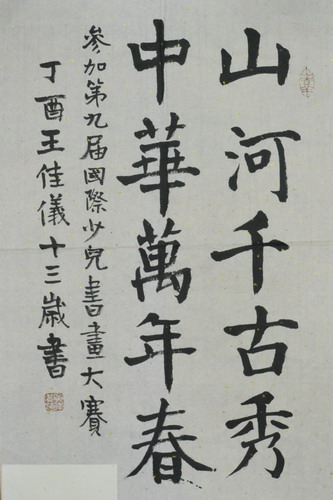 山河千古秀
中華萬年春
參加第九届國際少兒書畫大賽
丁酉王佳儀十三歲書